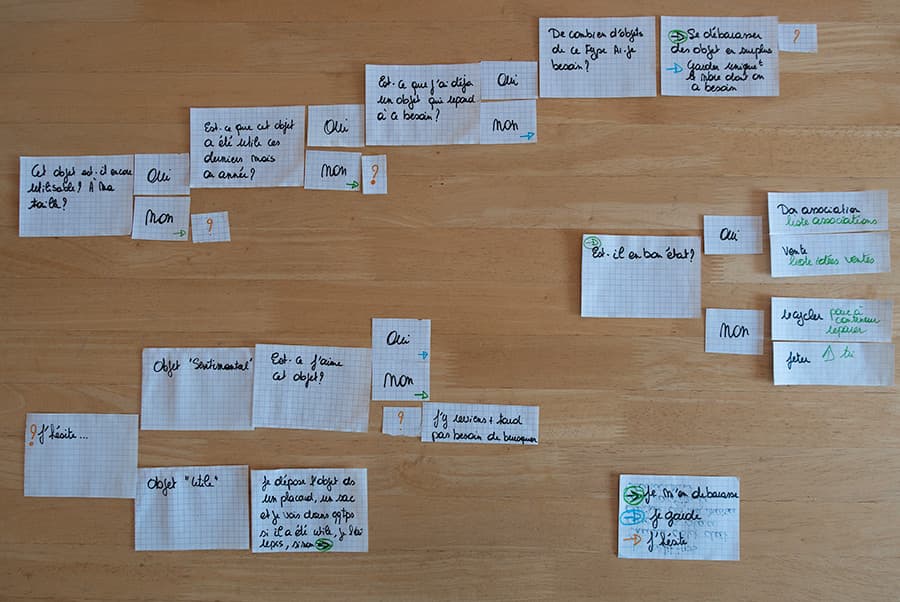 Cet objet est-il encore
utilisable? A ma
taille?
Oui
Non
?
Est-ce que cet objet
a été utile ces
derniers mois
ou année?
Oui
Non
?
Est-ce que j'ai déja
un objet qui repond
à ce besoin?
Oui
Non
De combien d'objets
de ce type Ai-je
besoin?
Se débarasser
des objet en surplus
Garder uniqueᵗ
le nbre dont on
a besoin
?
Est-il en bon état?
Oui
Non
Don association
liste associations
Vente
liste idées ventes
recycler
parc à
conteneur
reparer
jeter
tri
? J'hésite...
Objet "Sentimental"
Est-ce j'aime
cet objet?
Oui
Non
?
J'y reviens + tard
pas besoin de brusquer
Objet "Utile"
Je dépose l'objet ds
un placard, un sac
et je vois dans qqtps
si il a été utile, je
sinon
Je m'en debarasse
Je garde
J'hésite